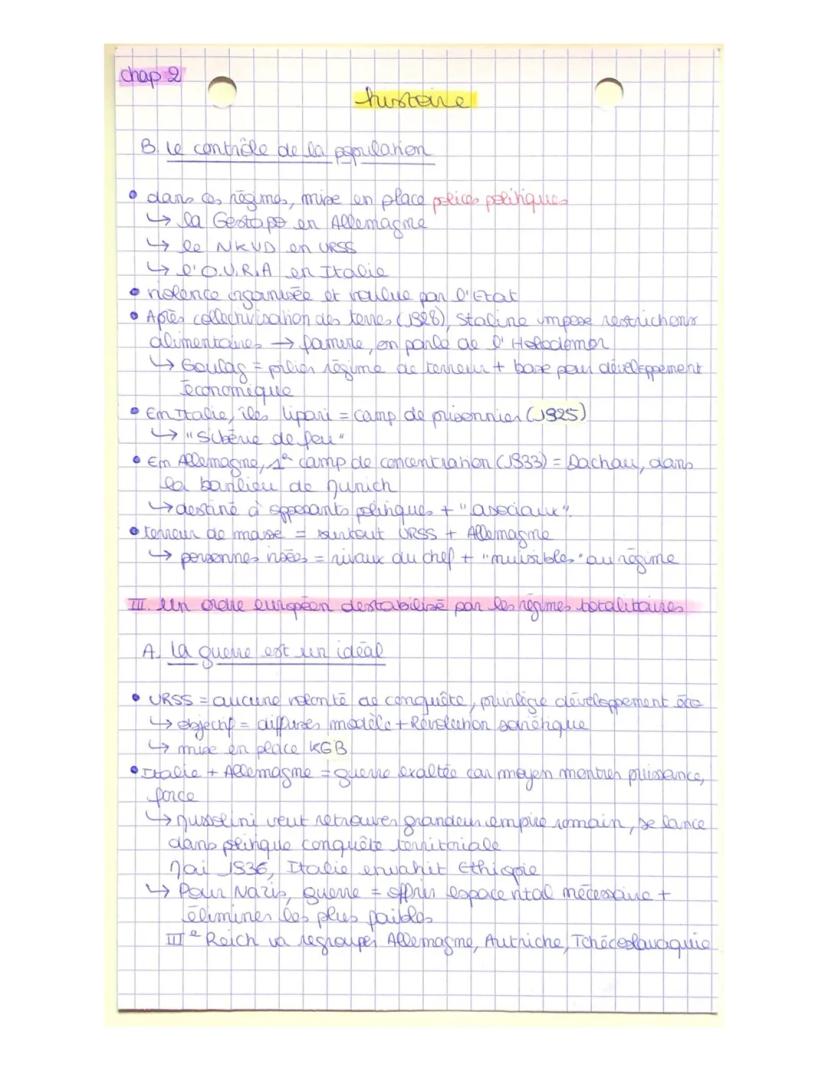 chap 2
histoire
B. Le contrôle de la population
• dans ces régimes, mise en place polices politiques
↳ la Gestapo en Allemagne
↳ le NKVD en URSS
↳ l'O.V.R.A en Italie
• violence organisée et voulue par l'Etat
• Après collectivisation des terres (1928), Staline impose restrictions
alimentaires → famine, on parle de l'Holodomor
↳ Goulag = pilier régime de terreur + base pour développement
économique
• En Italie, îles lipari = camp de prisonnier (1925)
↳ "Sibérie de feu"
• En Allemagne, 1er camp de concentration (1933) = Dachau, dans
la banlieu de Munich
↳ destiné à opposants politiques + "asociaux".
• terreur de masse = surtout URSS + Allemagne
↳ personnes visées = rivaux du chef + "nuisibles" au régime
III. Un ordre européen destabilisé par les régimes totalitaires
A. La guerre est un idéal
• URSS = aucune volonté de conquête, privilégie développement éco
↳ objectif = diffuser modèle + Révolution soviétique
↳ mise en place KGB
• Italie + Allemagne = guerre exaltée car moyen montrer puissance,
force
↳ Mussolini veut retrouver grandeur empire romain, se lance
dans politique conquête territoriale
Mai 1936, Italie envahit Ethiopie
↳ Pour Nazis, guerre = offrir espace vital nécessaire +
éliminer les plus faibles
IIIe Reich va regrouper Allemagne, Autriche, Tchécoslovaquie